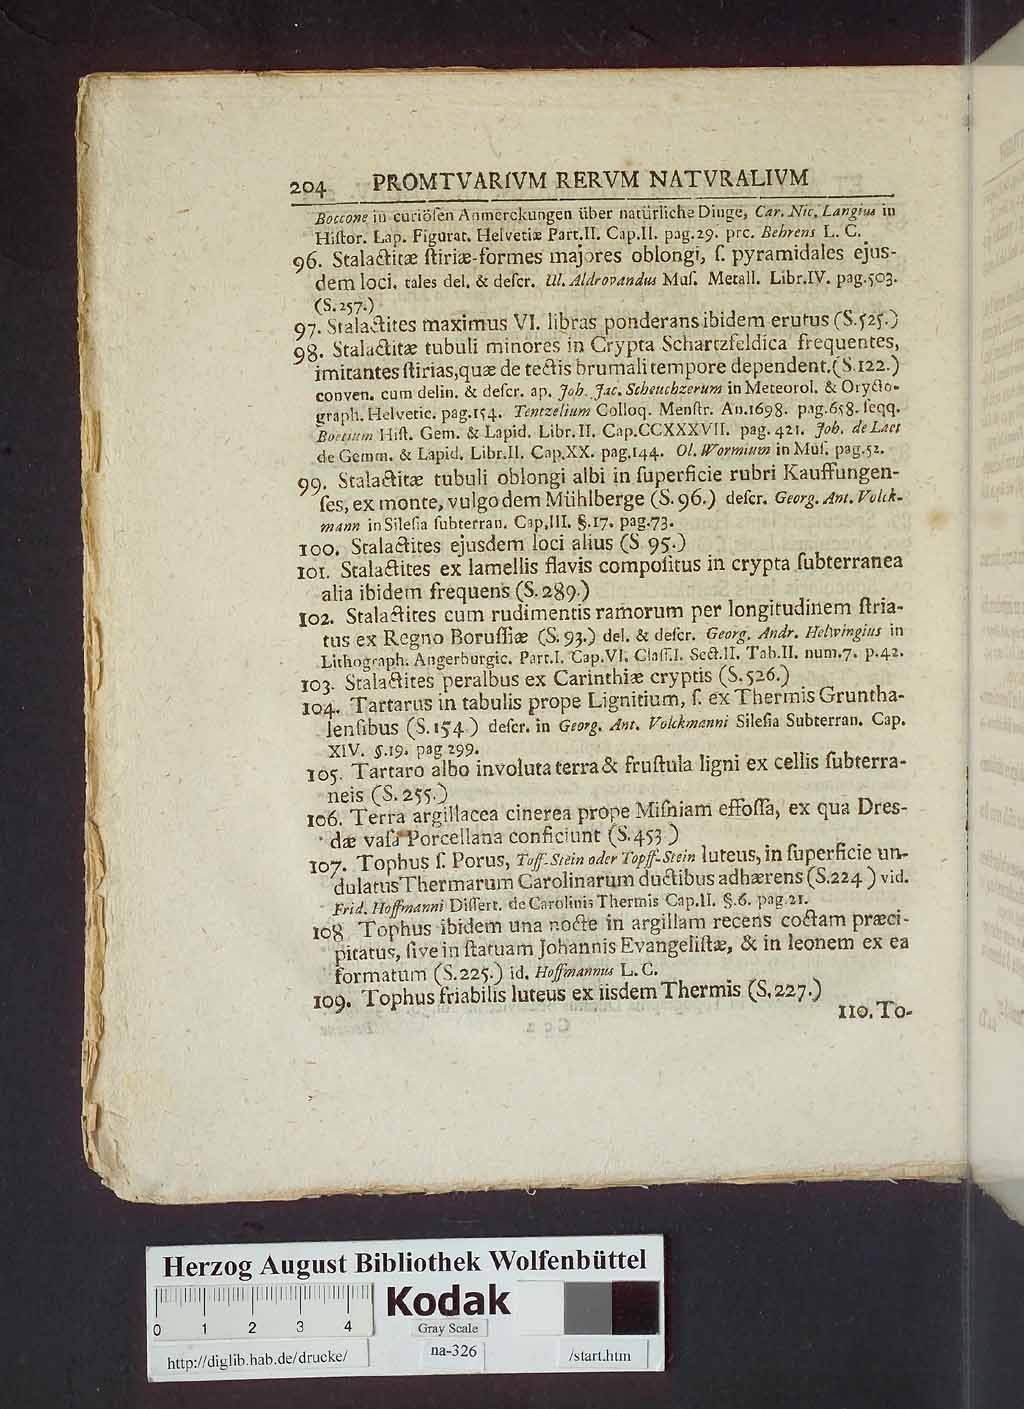 204 PROMTVARIVM RERVM NATVRALIVM
Boccone in curiösen Anmerckungen über natürliche Dinge, Car. Nic. Langius in
Hiſtor. Lap. Figurat. Helvetiæ Part.II. Cap.II. pag.29. prc. Behrens L. C.
96. Stalactitæ ſtiriæ-formes majores oblongi, ſ. pyramidales ejus-
dem loci. tales del. & deſcr. Ul. Aldrovandus Muſ. Metall. Libr.IV. pag.503.
(S.257.)
97. Stalactites maximus VI. libras ponderans ibidem erutus (S.525.)
98. Stalactitæ tubuli minores in Crypta Schartzfeldica frequentes,
imitantes ſtirias,quæ de tectis brumali tempore dependent.(S.122.)
conven. cum delin. & deſcr. ap. Joh. Jac. Scheuchzerum in Meteorol. & Orycto-
graph. Helvetic. pag.154. Tentzelium Colloq. Menſtr. An.1698. pag.658. ſeqq.
Boetium Hiſt. Gem. & Lapid. Libr.II. Cap.CCXXXVII. pag.421. Joh. de Laet
de Gemm. & Lapid. Libr.II. Cap.XX. pag.144. Ol. Wormium in Muſ. pag.52.
99. Stalactitæ tubuli oblongi albi in ſuperficie rubri Kauffungen-
ſes, ex monte, vulgo dem Mühlberge (S.96.) deſcr. Georg. Ant. Volck-
mann in Sileſia ſubterran. Cap.III. §.17. pag.73.
100. Stalactites ejusdem loci alius (S 95.)
101. Stalactites ex lamellis flavis compoſitus in crypta ſubterranea
alia ibidem frequens (S.289.)
102. Stalactites cum rudimentis ramorum per longitudinem ſtria-
tus ex Regno Boruſſiæ (S.93.) del. & deſcr. Georg. Andr. Helwingius in
Lithograph. Angerburgic. Part.I. Cap.VI. Claſſ.I. Sect.II. Tab.II. num.7. p.42.
103. Stalactites peralbus ex Carinthiæ cryptis (S.526.)
104. Tartarus in tabulis prope Lignitium, ſ. ex Thermis Gruntha-
lenſibus (S.154.) deſcr. in Georg. Ant. Volckmanni Sileſia Subterran. Cap.
XIV. §.19. pag 299.
105. Tartaro albo involuta terra & fruſtula ligni ex cellis ſubterra-
neis (S.255.)
106. Terra argillacea cinerea prope Miſniam effoſſa, ex qua Dres-
dæ vaſa Porcellana conficiunt (S.453 )
107. Tophus ſ. Porus, Toff-Stein oder Topff-Stein luteus, in ſuperficie un-
dulatus Thermarum Carolinarum ductibus adhærens (S.224 ) vid.
Frid. Hoffmanni Diſſert. de Carolinis Thermis Cap.II. §.6. pag.21.
108 Tophus ibidem una nocte in argillam recens coctam præci-
pitatus, ſive in ſtatuam Johannis Evangeliſtæ, & in leonem ex ea
formatum (S.225.) id. Hoffmannus L. C.
109. Tophus friabilis luteus ex iisdem Thermis (S.227.)
110. To-
Herzog August Bibliothek Wolfenbüttel
0 1 2 3 4
Kodak
Gray Scale
http://diglib.hab.de/drucke/ na-326 /start.htm